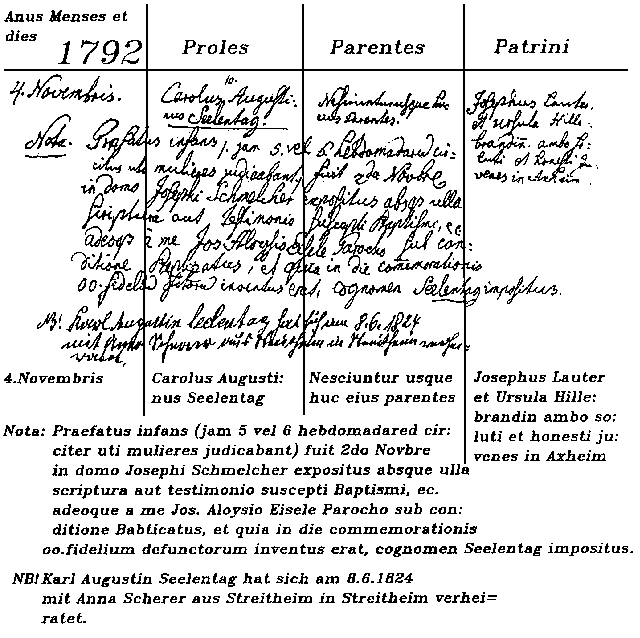 Anus Menses et
dies
1792
Proles
Parentes
Patrini
4. Novembris.
10.
Carolus Augusti:
nus Seelentag.
Nesciuntur usque huc
eius Parentes.
Josephus Lauter
et Ursula Hille:
brandin ambo so:
luti et honesti ju:
venes in Axheim
Nota. Praefatus infans (jam 5 vel 6 hebdomadared cir:
citer uti mulieres judicabant) fuit 2da Novbre
in domo Josephi Schmelcher expositus absque ulla
scriptura aut testimonio suscepti Baptismi, ec
adeoque a me Jos. Aloysio Eisele Parocho sub con:
ditione Baptizatus, et quia in die commemorationis
oo. fidelium defunctorum inventus erat, cognomen Seelentag impositus.
NB! Karl Augustin Seelentag hat sich am 8.6.1824
mit Anna Scherer aus Streitheim in Streitheim verhei=
ratet.
4.Novembris
Carolus Augusti:
nus Seelentag
Nesciuntur usque
huc eius parentes
Josephus Lauter
et Ursula Hille:
brandin ambo so:
luti et honesti ju:
venes in Axheim
Nota: Praefatus infans (jam 5 vel 6 hebdomadared cir:
citer uti mulieres judicabant) fuit 2do Novbre
in domo Josephi Schmelcher expositus absque ulla
scriptura aut testimonio suscepti Baptismi, ec.
adeoque a me Jos. Aloysio Eisele Parocho sub con:
ditione Babticatus, et quia in die commemorationis
oo.fidelium defunctorum inventus erat, cognomen Seelentag impositus.
NB! Karl Augustin Seelentag hat sich am 8.6.1824
mit Anna Scherer aus Streitheim in Streitheim verhei=
ratet.